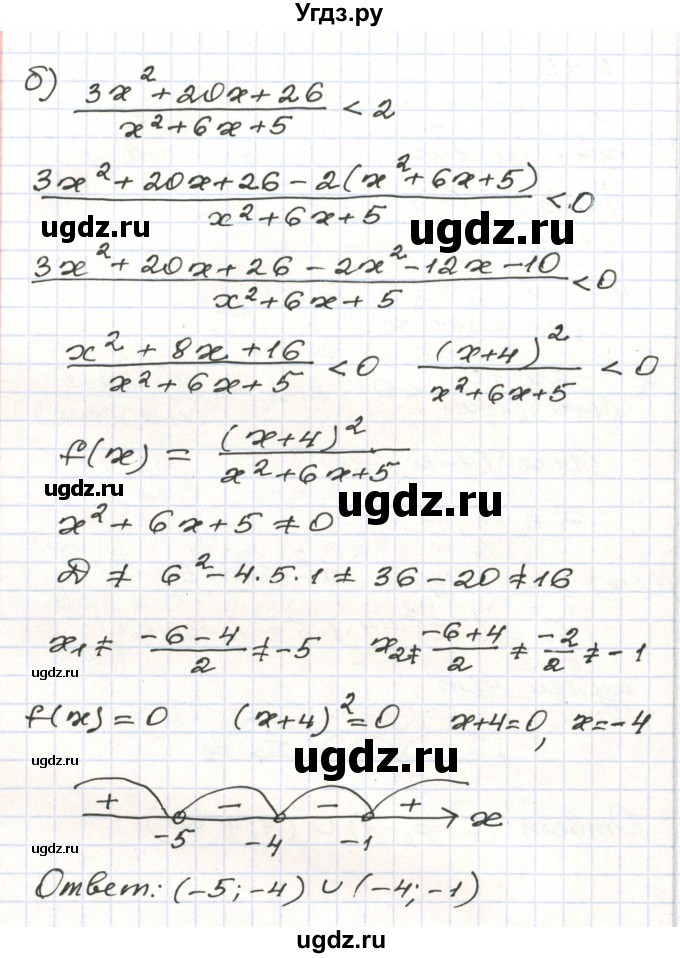 Угдз.ру
б) (3x²+20x+26)/(x²+6x+5) < 2
(3x²+20x+26-2(x²+6x+5))/(x²+6x+5) < 0
ugdz.ru ugdz.ru
(3x²+20x+26-2x²-12x-10)/(x²+6x+5) < 0
(x²+8x+16)/(x²+6x+5) < 0 (x+4)²/(x²+6x+5) < 0
f(x) = (x+4)²/(x²+6x+5)
ugdz.ru ugdz.ru
x²+6x+5≠0
D ≠ 6²-4·5·1 ≠ 36-20≠16
x₁≠ (-6-4)/2 ≠-5 x₂≠ (-6+4)/2 ≠ -2/2 ≠-1
ugdz.ru
f(x)=0 (x+4)²=0 x+4=0, x=-4
ugdz.ru ugdz.ru
+ - - + x
-5 -4 -1
ugdz.ru
Ответ: (-5;-4)∪(-4;-1)
ugdz.ru